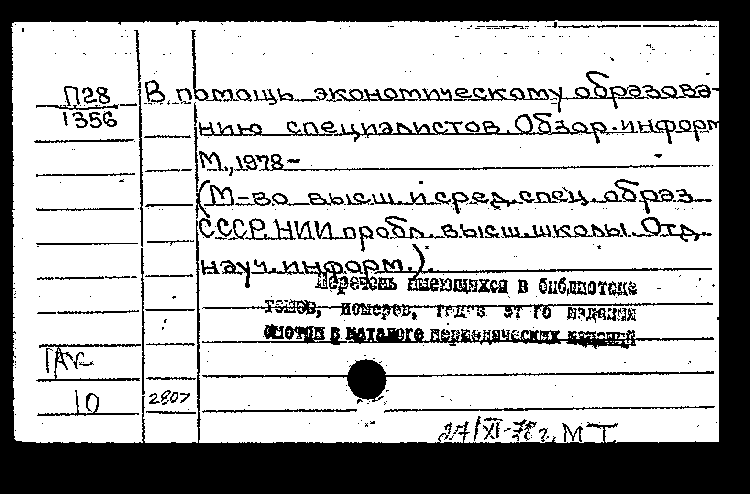 П28
1356
В помощь экономическому образова-
нию специалистов. Обзор. информ
М., 1978-
(М-во высш. и сред. спец. образ
СССР. НИИ пробл. высш. школы. Отд.
науч. информ.).
Перечень имеющихся в библиотеке
томов, номеров, годов этого издания
смотри в каталоге периодических изданий
10
2807
27/XI-78 г. МТ